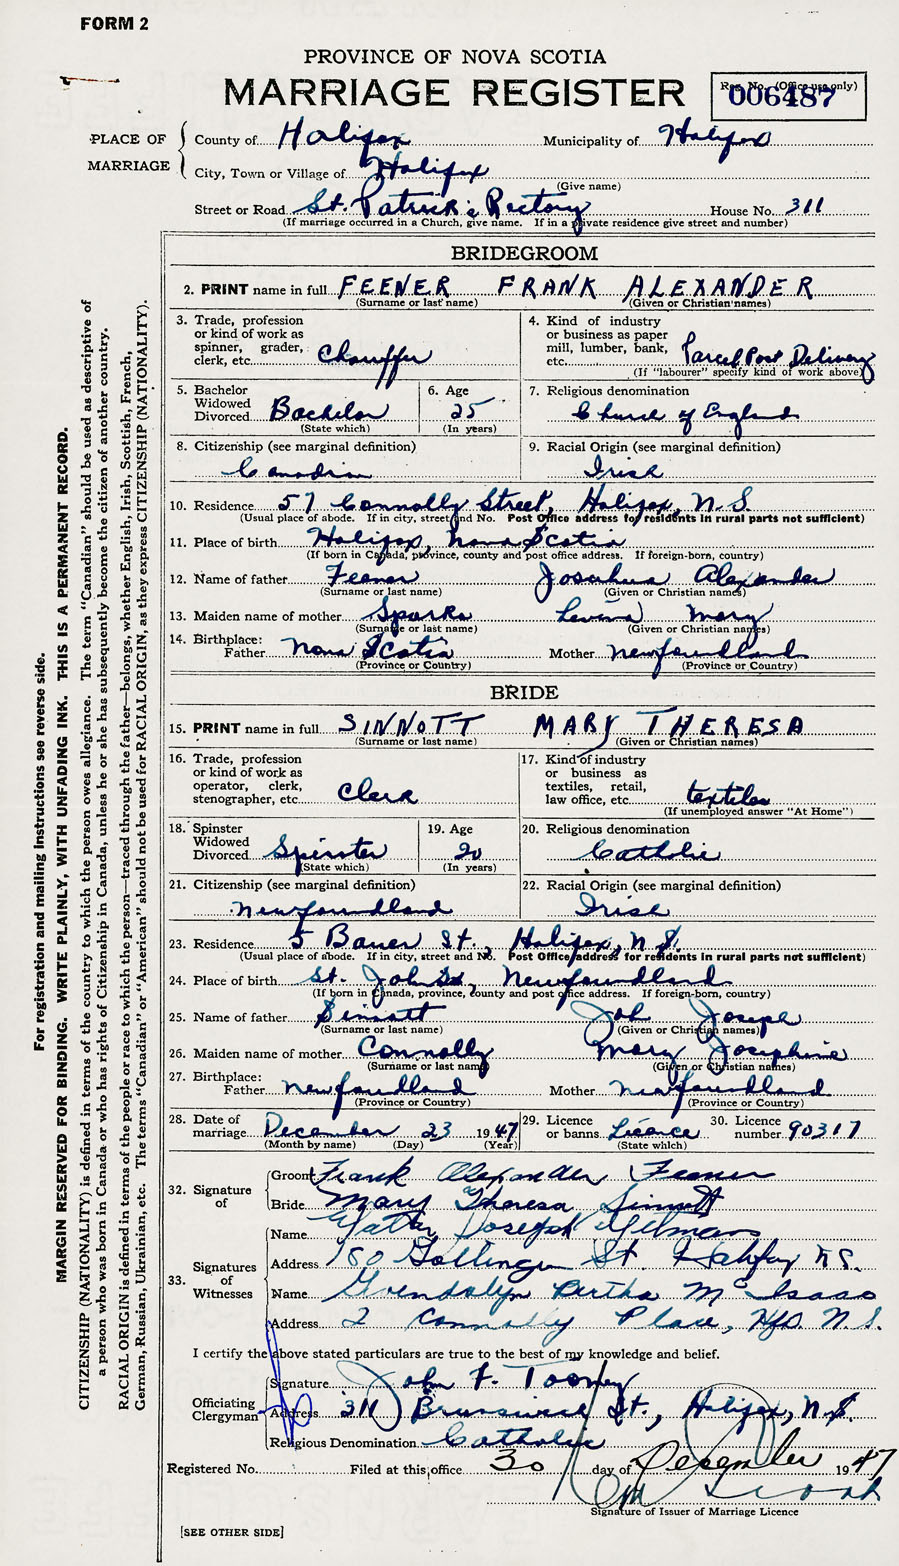 FORM 2
PROVINCE OF NOVA SCOTIA
MARRIAGE REGISTER
Reg. No. (Office use only)
006487
PLACE OF MARRIAGE
County of Halifax Municipality of Halifax
City, Town or Village of Halifax
(Give name)
Street or Road St. Patrick's Rectory House No. 311
(If marriage occurred in a Church, give name. If in a private residence give street and number)
BRIDEGROOM
2. PRINT name in full FEENER FRANK ALEXANDER
(Surname or last name) (Given or Christian names)
3. Trade, profession or kind of work as spinner, grader, clerk, etc. Chauffer
4. Kind of industry or business as paper mill, lumber, bank, etc. Parcel Post Delivery
(If "labourer" specify kind of work above)
5. Bachelor Widowed Divorced Bachelor
(State which)
6. Age 25
(In years)
7. Religious denomination
Church of England
8. Citizenship (see marginal definition)
Canadian
9. Racial Origin (see marginal definition)
Irish
10. Residence 57 Connolly Street, Halifax, N.S.
(Usual place of abode. If in city, street and No. Post Office address for residents in rural parts not sufficient)
11. Place of birth Halifax, Nova Scotia
(If born in Canada, province, county and post office address. If foreign-born, country)
12. Name of father Feener Alexander
(Surname or last name) (Given or Christian names)
13. Maiden name of mother Sparks Levina Mary
(Surname or last name) (Given or Christian names)
14. Birthplace:
Father Nova Scotia Mother Newfoundland
(Province or Country) (Province or Country)
BRIDE
15. PRINT name in full SINNOTT MARY THERESA
(Surname or last name) (Given or Christian names)
16. Trade, profession or kind of work as operator, clerk, stenographer, etc. Clerk
17. Kind of industry or business as textiles, retail, law office, etc. textiles
(If unemployed answer "At Home")
18. Spinster Widowed Divorced Spinster
(State which)
19. Age 20
(In years)
20. Religious denomination
Catholic
21. Citizenship (see marginal definition)
Newfoundland
22. Racial Origin (see marginal definition)
Irish
23. Residence 5 Bauer St., Halifax, N.S.
(Usual place of abode. If in city, street and No. Post Office address for residents in rural parts not sufficient)
24. Place of birth St. John's, Newfoundland
(If born in Canada, province, county and post office address. If foreign-born, country)
25. Name of father Sinnott Joseph
(Surname or last name) (Given or Christian names)
26. Maiden name of mother Connolly Mary Josephine
(Surname or last name) (Given or Christian names)
27. Birthplace:
Father Newfoundland Mother Newfoundland
(Province or Country) (Province or Country)
28. Date of marriage December 23 1947
(Month by name) (Day) (Year)
29. Licence or banns Licence
(State which)
30. Licence number 90317
32. Signature of
Groom Frank Alexander Feener
Bride Mary Theresa Sinnott
33. Signatures of Witnesses
Name Joseph
Address St. Halifax N.S.
Name Gwendolyn Bertha McIsaac
Address 2 Connolly Place, Hfx. N.S.
I certify the above stated particulars are true to the best of my knowledge and belief.
Officiating Clergyman
Signature John F. Toomey
Address 311 Brunswick St., Halifax, N.S.
Religious Denomination Catholic
Registered No. Filed at this office 30 day of December 1947
Signature of Issuer of Marriage Licence
[SEE OTHER SIDE]
For registration and mailing instructions see reverse side.
MARGIN RESERVED FOR BINDING. WRITE PLAINLY, WITH UNFADING INK. THIS IS A PERMANENT RECORD.
CITIZENSHIP (NATIONALITY) is defined in terms of the country to which the person owes allegiance. The term "Canadian" should be used as descriptive of
a person who was born in Canada or who has rights of Citizenship in Canada, unless he or she has subsequently become the citizen of another country.
RACIAL ORIGIN is defined in terms of the people or race to which the person—traced through the father—belongs, whether English, Irish, Scottish, French,
German, Russian, Ukrainian, etc. The terms "Canadian" or "American" should not be used for RACIAL ORIGIN, as they express CITIZENSHIP (NATIONALITY).